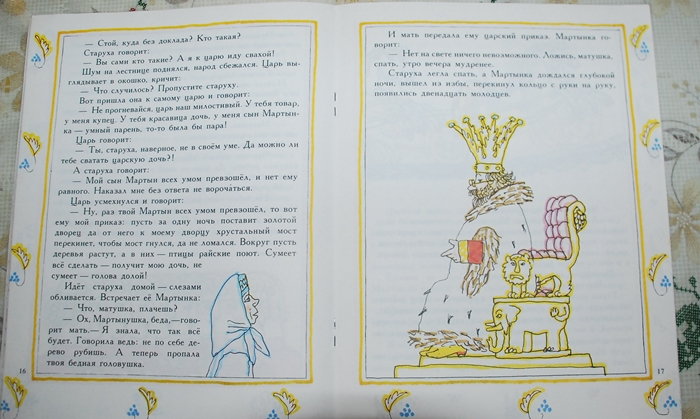 — Стой, куда без доклада? Кто такая?
Старуха говорит:
— Вы сами кто такие? А я к царю иду свахой!
Шум на лестнице поднялся, народ сбежался. Царь вы-
глядывает в окошко, кричит:
— Что случилось? Пропустите старуху.
Вот пришла она к самому царю и говорит:
— Не прогневайся, царь наш милостивый. У тебя товар,
у меня купец. У тебя красавица дочь, у меня сын Мартын-
ка — умный парень, то-то была бы пара!
Царь говорит:
— Ты, старуха, наверное, не в своём уме. Да можно ли
тебе сватать царскую дочь?!
А старуха говорит:
— Мой сын Мартын всех умом превзошёл, и нет ему
равного. Наказал мне без ответа не ворочаться.
Царь усмехнулся и говорит:
— Ну, раз твой Мартын всех умом превзошёл, то вот
ему мой приказ: пусть за одну ночь поставит золотой
дворец да от него к моему дворцу хрустальный мост
перекинет, чтобы мост гнулся, да не ломался. Вокруг пусть
деревья растут, а в них — птицы райские поют. Сумеет
всё сделать — получит мою дочь, не
сумеет — голова долой!
Идёт старуха домой — слезами
обливается. Встречает её Мартынка:
— Что, матушка, плачешь?
— Ох, Мартынушка, беда,—гово-
рит мать.— Я знала, что так всё
будет. Говорила ведь: не по себе де-
рево рубишь. А теперь пропала
твоя бедная головушка.
16
И мать передала ему царский приказ. Мартынка го-
ворит:
— Нет на свете ничего невозможного. Ложись, матушка,
спать, утро вечера мудренее.
Старуха легла спать, а Мартынка дождался глубокой
ночи, вышел из избы, перекинул кольцо с руки на руку,
появились двенадцать молодцев.
17